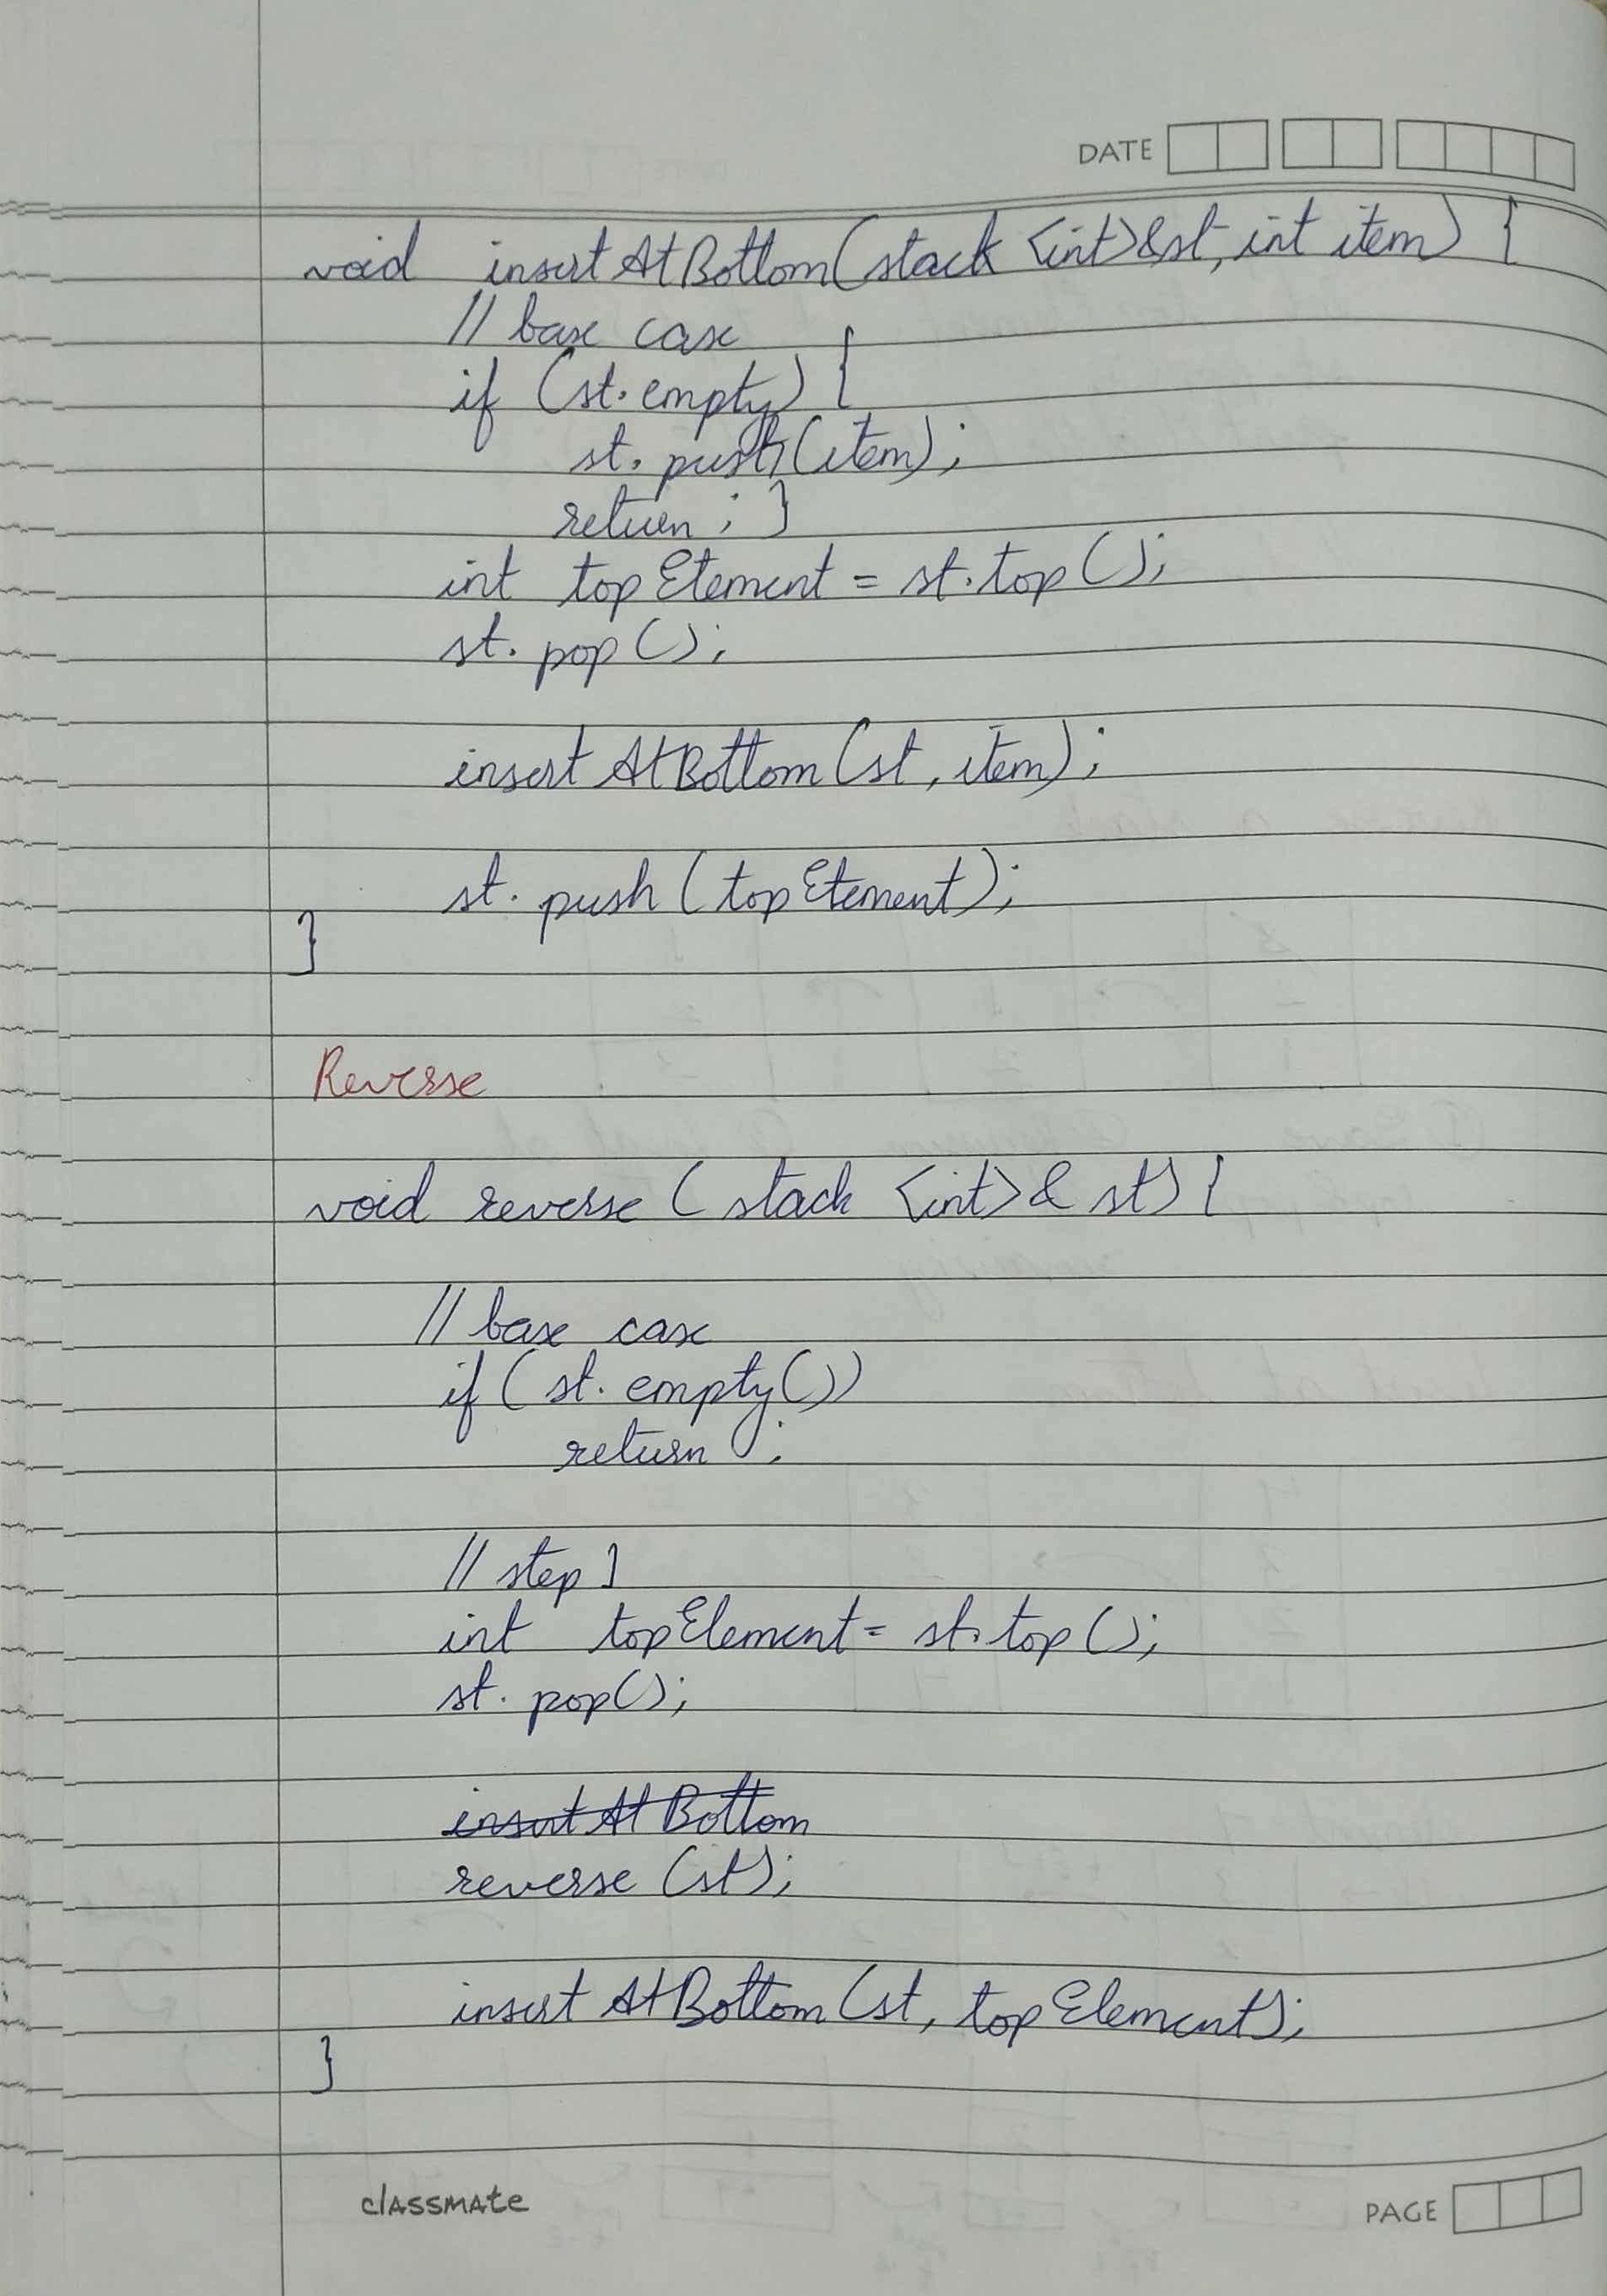 DATE
void insertAtBottom(stack <int>&st, int item) {
// base case
if (st.empty) {
st. push(item);
return ; }
int topEtement = st.top();
st. pop();
insertAtBottom(st, item);
st. push (topEtement);
}
Reverse
void reverse ( stack <int>& st) {
// base case
if ( st. empty())
return ;
// step 1
int topElement = st.top();
st. pop();
insertAtBottom
reverse (st);
insertAtBottom(st, topElement);
}
classmate
PAGE